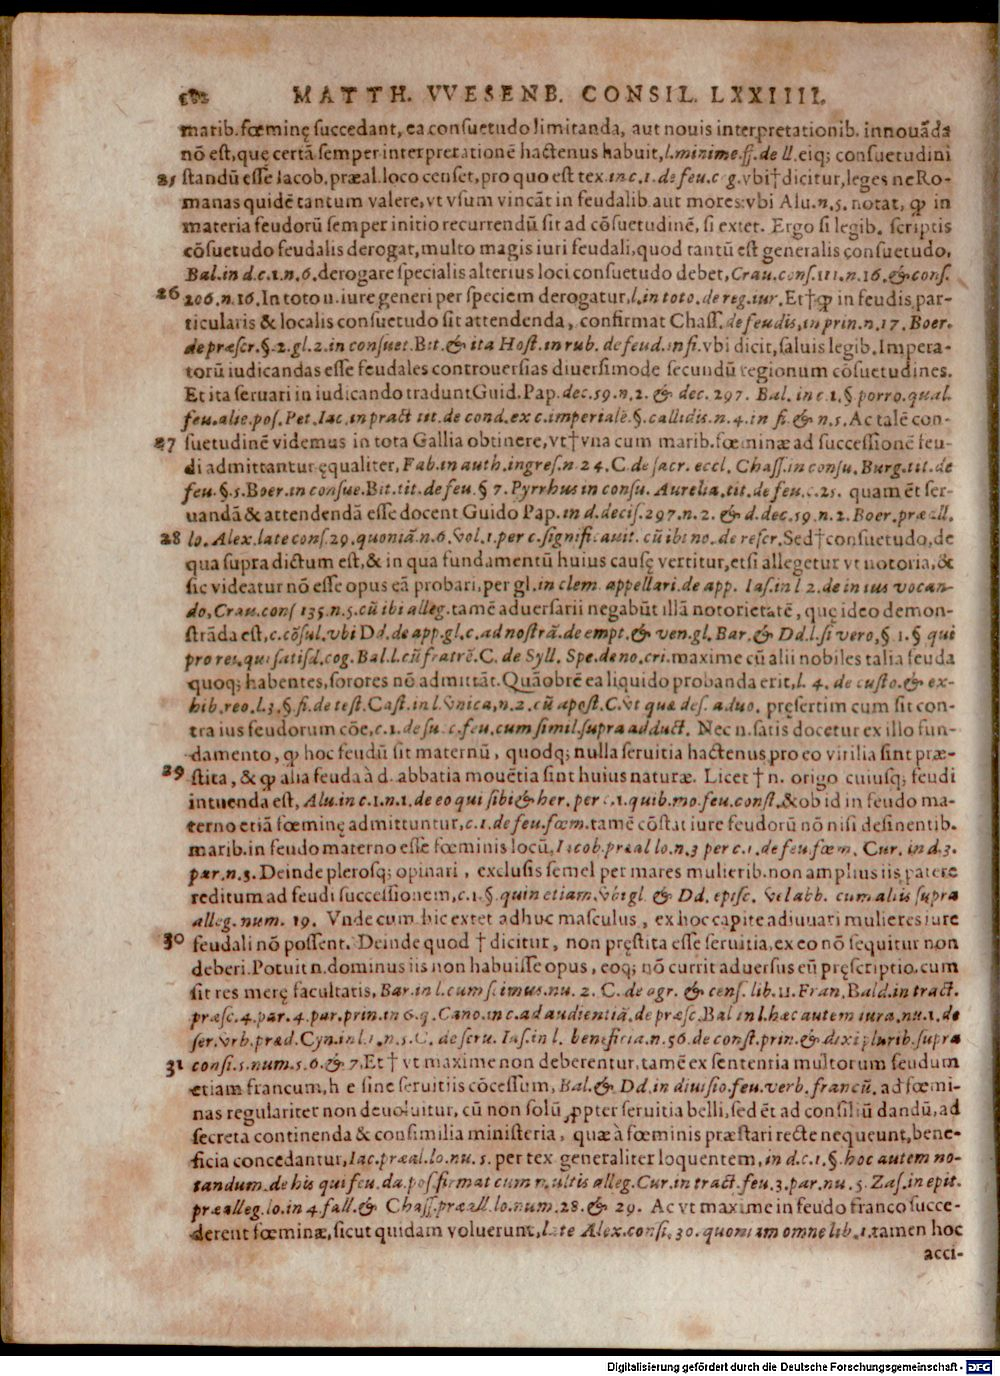 MATTH. VVESENB. CONSIL. LXXIIII.
marib. fœminę succedant, ea consuetudo limitanda, aut nouis interpretationib. innouãda
nõ est, quę certã semper interpretationẽ hactenus habuit, l. minime. ff. de ll. eiq; consuetudini
25 standũ esse Iacob. præal. loco censet, pro quo est tex. in c. 1. de feu. c g. vbi † dicitur, leges ne Ro-
manas quidẽ tantum valere, vt vsum vincãt in feudalib. aut mores: vbi Alu. n. 5. notat, ꝙ in
materia feudorũ semper initio recurrendũ sit ad cõsuetudinẽ, si extet. Ergo si legib. scriptis
cõsuetudo feudalis derogat, multo magis iuri feudali, quod tantũ est generalis consuetudo,
Bal. in d. c. 1. n. 6. derogare specialis alterius loci consuetudo debet, Crau. cons. 111. n. 16. & cons.
26 206. n. 16. In toto n. iure generi per speciem derogatur, l. in toto. de reg. iur. Et † ꝙ in feudis par-
ticularis & localis consuetudo sit attendenda, confirmat Chass. de feudis, in prin. n. 17. Boer.
de præscr. §. 2. gl. 2. in consuet. Bit. & ita Host. in rub. de feud. in fi. vbi dicit, saluis legib. Impera-
torũ iudicandas esse feudales controuersias diuersimode secundũ regionum cõsuetudines.
Et ita seruari in iudicando tradunt Guid. Pap. dec. 59. n. 2. & dec. 297. Bal. in c. 1. § porro. qual.
feu. alie. pos. Pet. Iac. in pract tit. de cond. ex c. imperialẽ. §. callidis. n. 4. in fi. & n. 5. Ac talẽ con-
27 suetudinẽ videmus in tota Gallia obtinere, vt † vna cum marib. fœminæ ad successionẽ feu-
di admittantur ęqualiter, Fab. in auth. ingres. n 24. C. de sacr. eccl. Chass. in consu. Burg. tit. de
feu. §. 5. Boer. in consue. Bit. tit. de feu. § 7. Pyrrhus in consu. Aurelia. tit. de feu. c. 25. quam ẽt ser-
uandã & attendendã esse docent Guido Pap. in d. decis. 297. n. 2. & d. dec. 59. n. 2. Boer. præall.
28 lo. Alex. late cons. 29. quoniã. n. 6. vol. 1. per c. significauit. cũ ibi no. de rescr. Sed † consuetudo, de
qua supra dictum est, & in qua fundamentũ huius causę vertitur, etsi allegetur vt notoria, &
sic videatur nõ esse opus eã probari, per gl. in clem. appellari. de app. Ias. in l 2. de in ius vocan-
do, Crau. cons 135. n. 5. cũ ibi alleg. tamẽ aduersarii negabũt illã notorietatẽ, quę ideo demon-
strãda est, c. cõsul. vbi Dd. de app. gl. c. ad nostrã. de empt. & ven. gl. Bar. & Dd. l. si vero, § 1. § qui
pro rei. qui satisd. cog. Bal. l. cũ fratrẽ. C. de Syll. Spe. de no. cri. maxime cũ alii nobiles talia feuda
quoq; habentes, sorores nõ admittãt. Quãobrẽ ea liquido probanda erit, l. 4. de custo. & ex-
hib. reo. l. 3. § fi. de test. Cast. in l. vnica, n. 2. cũ apost. C. vt quæ des. aduo. pręsertim cum sit con-
tra ius feudorum cõe, c. 1. de su. c. feu. cum simil. supra adduct. Nec n. satis docetur ex illo fun-
damento, ꝙ hoc feudũ sit maternũ, quodq; nulla seruitia hactenus pro eo virilia sint præ-
29 stita, & ꝙ alia feuda à d. abbatia mouẽtia sint huius naturæ. Licet † n. origo cuiusq; feudi
intuenda est, Alu. in c. 1. n. 1. de eo qui sibi & her. per c. 1. quib. mo. feu. const. & ob id in feudo ma-
terno etiã fœminę admittuntur, c. 1. de feu. fœm. tamẽ cõstat iure feudorũ nõ nisi desinentib.
marib. in feudo materno esse fœminis locũ, Iacob. præal lo. n. 3 per c. 1. de feu. fœm. Cur. in d. 3.
par. n. 3. Deinde plerosq; opinari, exclusis semel per mares mulierib. non amplius iis patere
reditum ad feudi successionem, c. 1. §. quin etiam. vbi gl. & Dd. episc. vel abb. cum aliis supra
alleg. num. 19. Vnde cum hic extet adhuc masculus, ex hoc capite adiuuari mulieres iure
30 feudali nõ possent. Deinde quod † dicitur, non pręstita esse seruitia, ex eo nõ sequitur non
deberi. Potuit n. dominus iis non habuisse opus, eoq; nõ currit aduersus eũ pręscriptio. cum
sit res merę facultatis, Bar. in l. cum scimus. nu. 2. C. de agr. & cens. lib. 11. Fran. Bald. in tract.
præsc. 4. par. 4. par. prin. in 6. q. Cano. in c. ad audientiã. de præsc. Bal in l. hæc autem iura. nu. 1. de
ser. vrb. præd. Cyn. in l. 1. n. 5. C. de seru. Ias. in l. beneficia. n. 56. de const. prin. & dixi plurib. supra
31 consi. 5. num. 5. 6. & 7. Et † vt maxime non deberentur, tamẽ ex sententia multorum feudum
etiam francum, h e sine seruitiis cõcessum, Bal. & Dd. in diuisio. feu. verb. francũ. ad fœmi-
nas regulariter non deuoluitur, cũ non solũ ꝓpter seruitia belli, sed ẽt ad consiliũ dandũ, ad
secreta continenda & consimilia ministeria, quæ à fœminis præstari recte nequeunt, bene-
ficia concedantur, Iac. præal. lo. nu. 5. per tex generaliter loquentem, in d. c. 1. §. hoc autem no-
tandum. de his qui feu. da. pos. firmat cum multis alleg. Cur. in tract. feu. 3. par. nu. 5. Zas. in epit.
præalleg. lo. in 4. fall. & Chass. præall. lo. num. 28. & 29. Ac vt maxime in feudo franco succe-
derent fœminæ, sicut quidam voluerunt, late Alex. consi. 30. quoniam omne lib. 1. tamen hoc
acci-
Digitalisierung gefördert durch die Deutsche Forschungsgemeinschaft - DFG